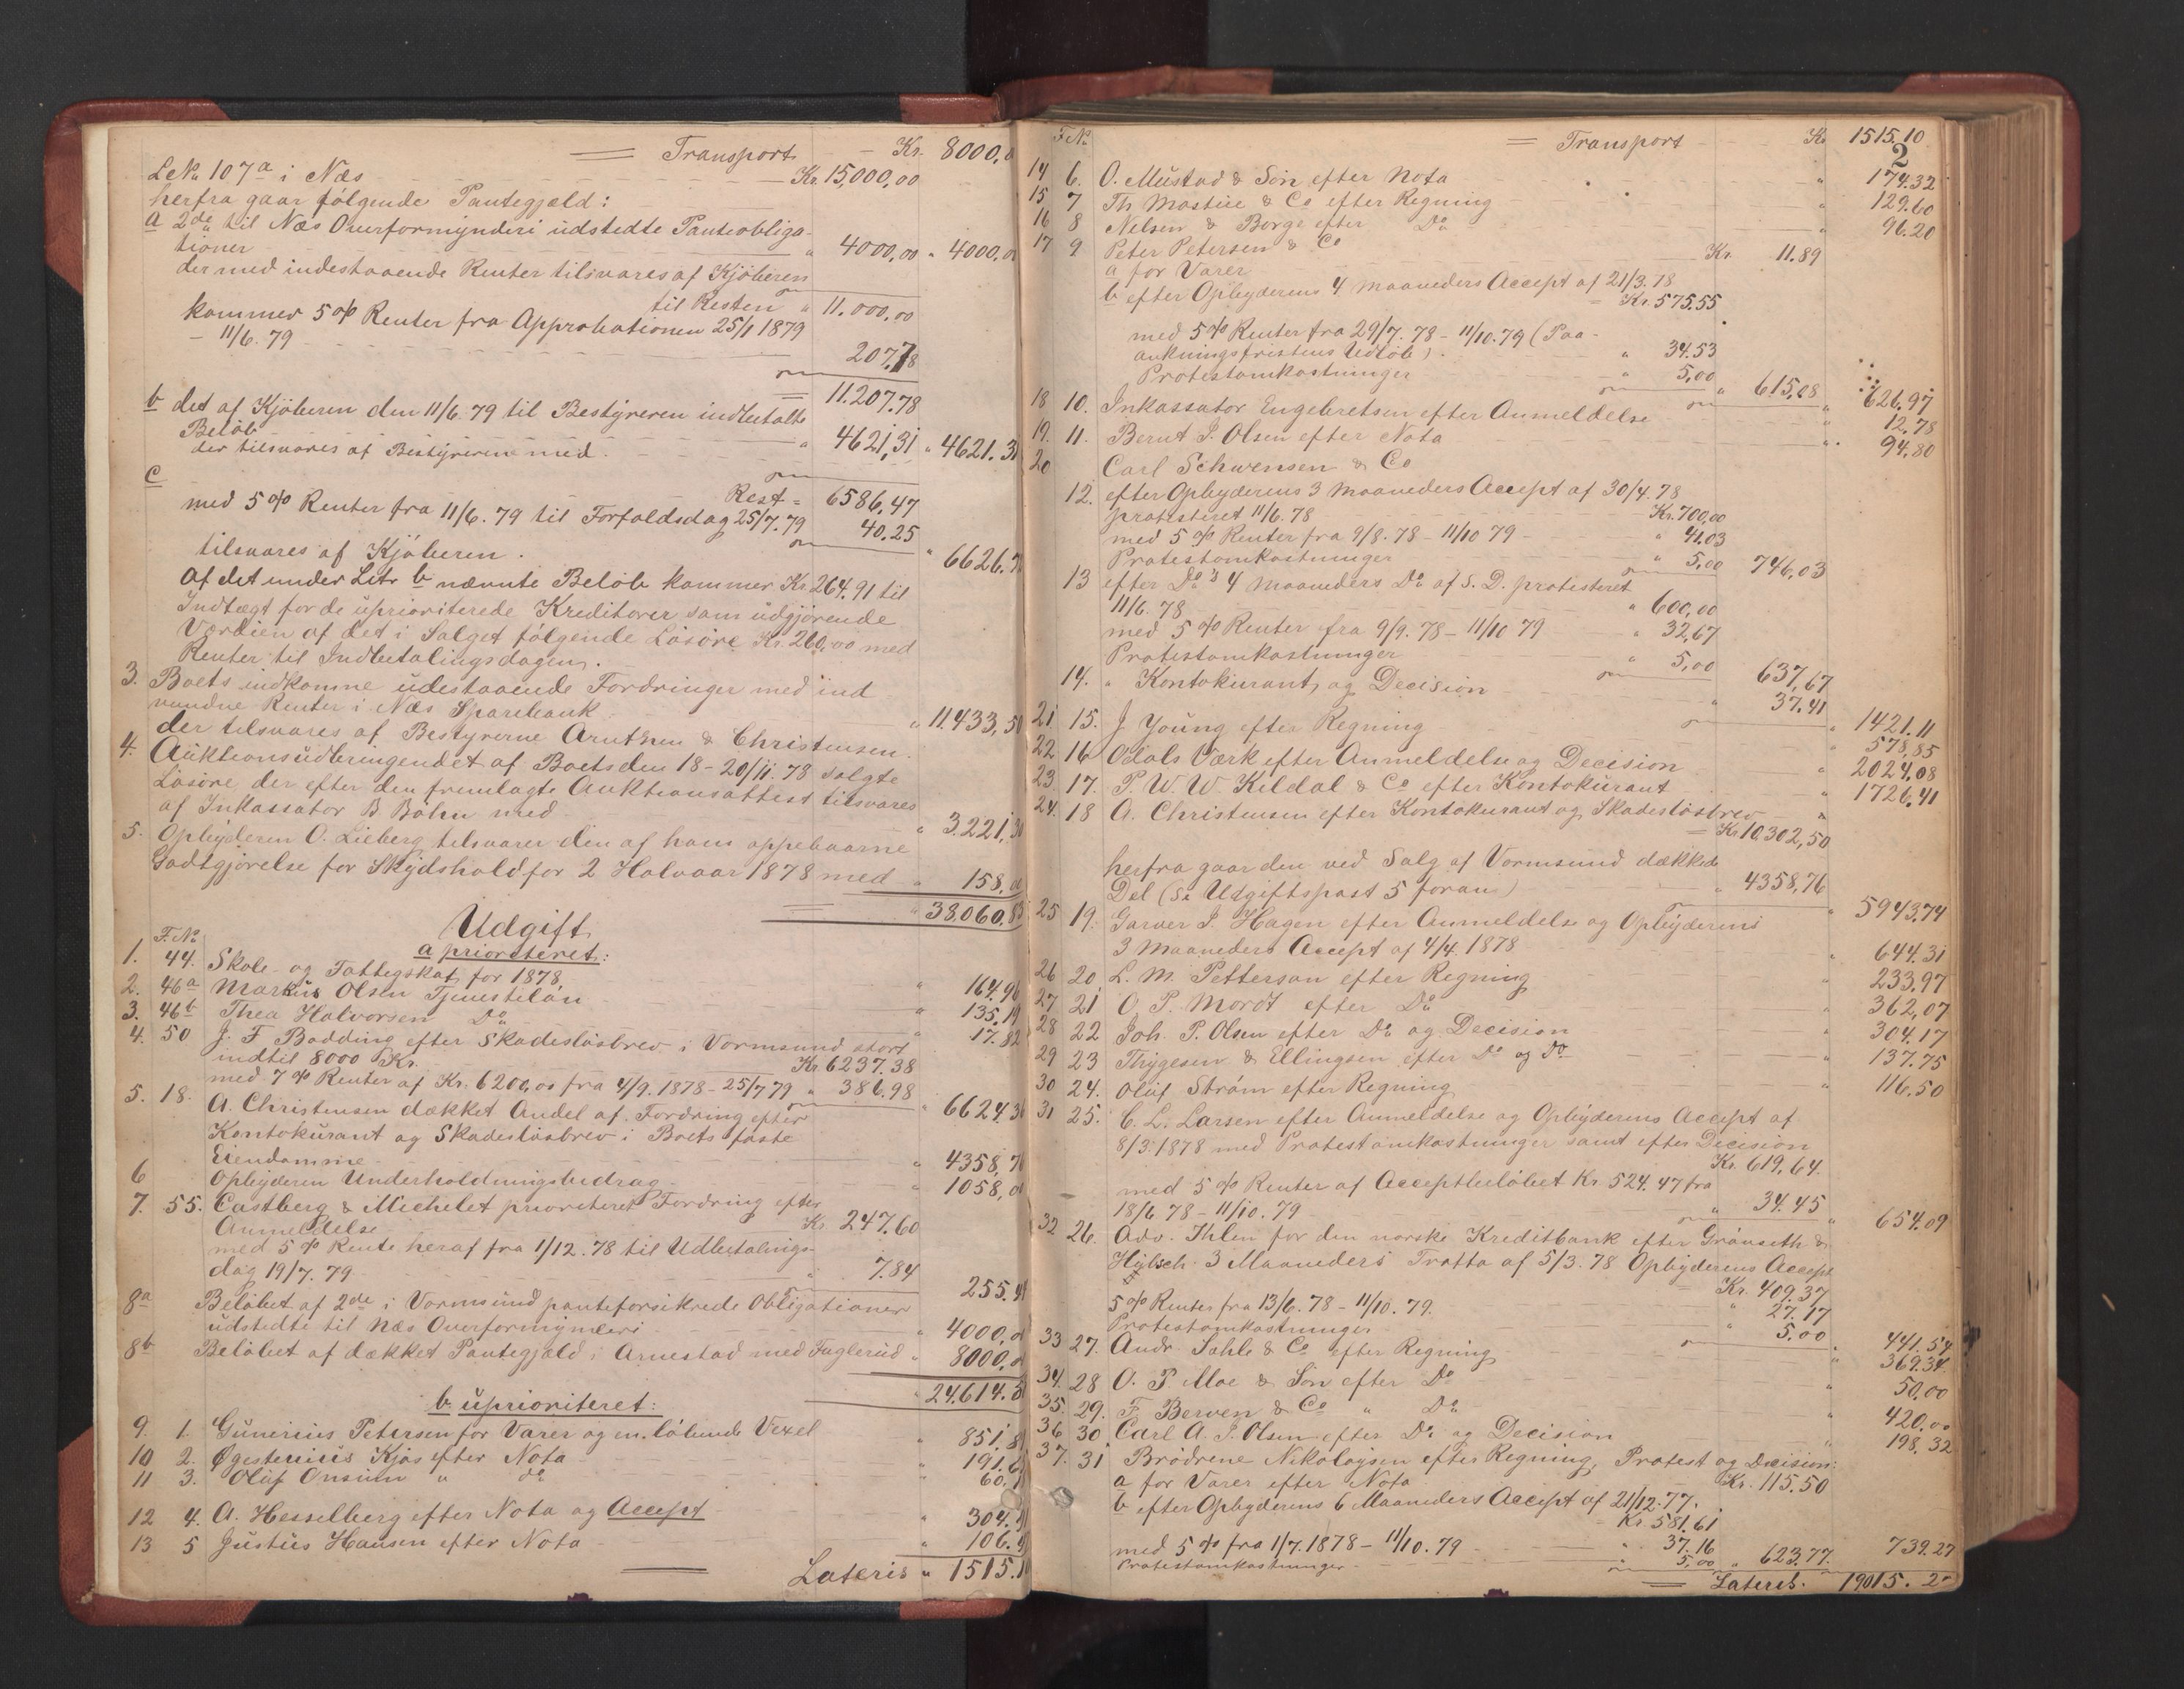 = Transport Kr. 8000,0
LNo 107a i Næs Kr. 15,000,00
herfra gaar følgende Pantegjæld:
a 2de til Næs Overformynderi udstedte Panteobliga-
tioner " 4000,00 " 4000,0
der med indestaaende Renter tilsvares af Kjøberen
til Resten " 11.000,00
kommer 5 % Renter fra Approbationen 25/1 1879
- 11/6. 79 207,78
= 11.207.78
b det af Kjøberen den 11/6. 79 til Bestyreren indbetalte
Beløb " 4621,31 " 4621.31
der tilsvares af Bestyrerne med.
c Rest = 6586,47
med 5 % Renter fra 11/6. 79 til Forfaldsdag 25/7. 79 40.25
tilsvares af Kjøberen. " 6626.7
Af det under Litr b nævnte Beløb kommer Kr. 264.91 til
Indtægt for de uprioriterede Kreditorer som udgjørende
Værdien af det i Salget følgende Løsøre Kr. 260,00 med
Renter til Indbetalingsdagen.
3. Boets indkomne udestaaende Fordringer med ind
vundne Renter i Næs Sparebank " 11.433,50
der tilsvares af Bestyrerne Arntzen & Christensen.
4. Auktionsudbringendet af Boets den 18 - 20/11. 78 solgte
Løsøre der efter den fremlagte Auktionsattest tilsvares
af Inkassator B. Bøhn med " 3.221,30
5. Opbyderen O. Lieberg tilsvarer den af ham oppebaarne
Godtgjørelse for Skydshold for 2 Halvaar 1878 med " 158,0
= " 38.060.85
Udgift
F. No
a prioriteret:
1. 44. Skole- og Fattigskat for 1878 " 164.96
2. 46a Markus Olsen Tjenesteløn " 135,19
3. 46b Thea Halvorsen Do " 17.82
4. 50 J. F. Bødding efter Skadesløsbrev i Vormsund stort
indtil 8000 Kr. Kr. 6237.38
med 7 % Renter af Kr. 6200,00 fra 4/9. 1878 - 25/7 79 " 386.98 " 6624.3
5. 18. A. Christensen dækket Andel af Fordring efter
Kontokurant og Skadesløsbrev i Boets faste
Eiendomme " 4358,76
6 Opbyderen Underholdningsbidrag " 1058,0
7. 55. Castberg & Michelet prioriteret Fordring efter
Anmeldelse Kr. 247.60
med 5 % Rente heraf fra 1/12. 78 til Udbetalings-
dag 19/7. 79 " 7.84 255.4
8a Beløbet af 2de i Vormsund panteforsikrede Obligationer
udstedte til Næs Overformynderi " 4000,0
8b Beløbet af dækket Pantegjæld i Arnestad med Fuglerud " 8000,0
" 24.614.5
b uprioriteret:
9. 1. Gunerius Petersen for Varer og en løbende Vexel " 851.8
10 2. Øgestenius Kjøs efter Nota " 191.6
11 3. Oluf Onsum " do " 60.
12 4. A. Hesselberg efter Nota og Accept " 304.9
13 5 Justus Hansen efter Nota " 106.9
Lateris " 1515.1
F. No = Transport Kr. 1515.10
2
14 6. O. Mustad & Søn efter Nota " 174.32
15 7 Th. Mostue & Co efter Regning " 129.60
16 8 Nelsen & Borge efter Do " 96.20
17 9 Peter Petersen & Co
a for Varer Kr. 11.89
b efter Opbyderens 4 Maaneders Accept af 21/3. 78
= Kr. 575.55
med 5 % Renter fra 29/7. 78 - 11/10. 79 (Paa-
ankningsfristens Udløb). " 34.53
Protestomkostninger " 5,00 " 615,08 " 626.97
18 10. Inkassator Engebretsen efter Anmeldelse " 12,78
19. 11. Bernt J. Olsen efter Nota " 94.80
20 Carl Schwensen & Co
12. efter Opbyderens 3 Maaneders Accept af 30/4. 78
protesteret 11/6. 78 Kr. 700,00
med 5 % Renter fra 9/8. 78 - 11/10 79 " 41.03
Protestomkostninger " 5,00 746,03
13 efter Do's 4 Maaneders Do af S. D. protesteret
11/6. 78 " 600,00
med 5 % Renter fra 9/9. 78 - 11/10 79 " 32,67
Protestomkostninger " 5,00 637,67
14. " Kontokurant og Decision " 37.41 " 1421.11
21 15. J Young efter Regning " 578,85
22 16 Odals Værk efter Anmeldelse og Decision " 2024.08
23. 17. P. W. W. Kildal & Co efter Kontokurant " 1726.41
24. 18 A. Christensen efter Kontokurant og Skadesløsbrev
= Kr 10.302,50
herfra gaar den ved Salg af Vormsund dækkede
Del (Se Udgiftspost 5 foran) " 4358,76 " 5943,74
25 19. Garver J. Hagen efter Anmeldelse og Opbyderens
3 Maaneders Accept af 4/4. 1878 " 644.31
26 20. L. M. Petterson efter Regning " 233,97
27 21 O. P. Mordt efter Do " 362,07
28 22 Joh. P. Olsen efter Do og Decision " 304.17
29 23 Thygesen & Ellingsen efter Do og Do " 137.75
30 24. Oluf Strøm efter Regning " 116,50
31 25. C. L. Larsen efter Anmeldelse og Opbyderens Accept af
8/3. 1878 med Protestomkostninger samt efter Decision
Kr. 619,64.
med 5 % Renter af Acceptbeløbet Kr. 524.47 fra
18/6 78 - 11/10. 79 " 34.45 " 654.09
32 26. Adv. Ihlen for den norske Kreditbank efter Grønseth &
Hybsch 3 Maaneders Tratta af 5/3. 78 Opbyderens Accept
Kr. 409.37
5 % Renter fra 13/6. 78 - 11/10. 79. " 27.17
Protestomkostninger " 5.00 " 441.54
33 27. Andr. Sahle & Co efter Regning " 369.34
34. 28 O. P. Moe & Søn efter Do " 50.00
35. 29. F. Berven & Co " Do " 420,00
36 30 Carl A. J. Olsen efter Do og Decision " 198.32
37. 31 Brødrene Nikolaysen efter Regning, Protest og Decision:
a for Varer efter Nota Kr. 115.50
b efter Opbyderens 6 Maaneders Accept af 21/12. 77.
Kr. 581.61
med 5 % fra 1/7. 1878 - 11/10. 79 " 37.16
Protestomkostninger " 5,00 " 623.77. 739.27
= Laterib. 19015. 2